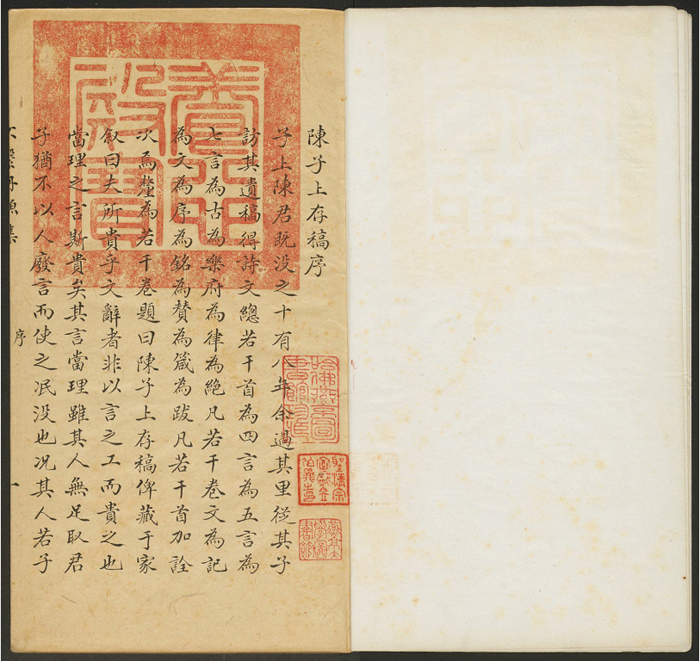 陳子上存稿序
子上陳君既没之十有八年余過其里從其子
訪其遺稿得詩文總若干首為四言為五言為
七言為古為樂府為律為絶凡若干卷文為記
為文為序為銘為賛為箴為跋凡若干首加詮
次焉釐為若干卷題曰陳子上存稿俾藏于家
叙曰夫所貴乎文辭者非以言之工而貴之也
當理之言斯貴矣其言當理雖其人無足取君
子猶不以人廢言而使之泯没也况其人若子
不繫舟漁集
序
一